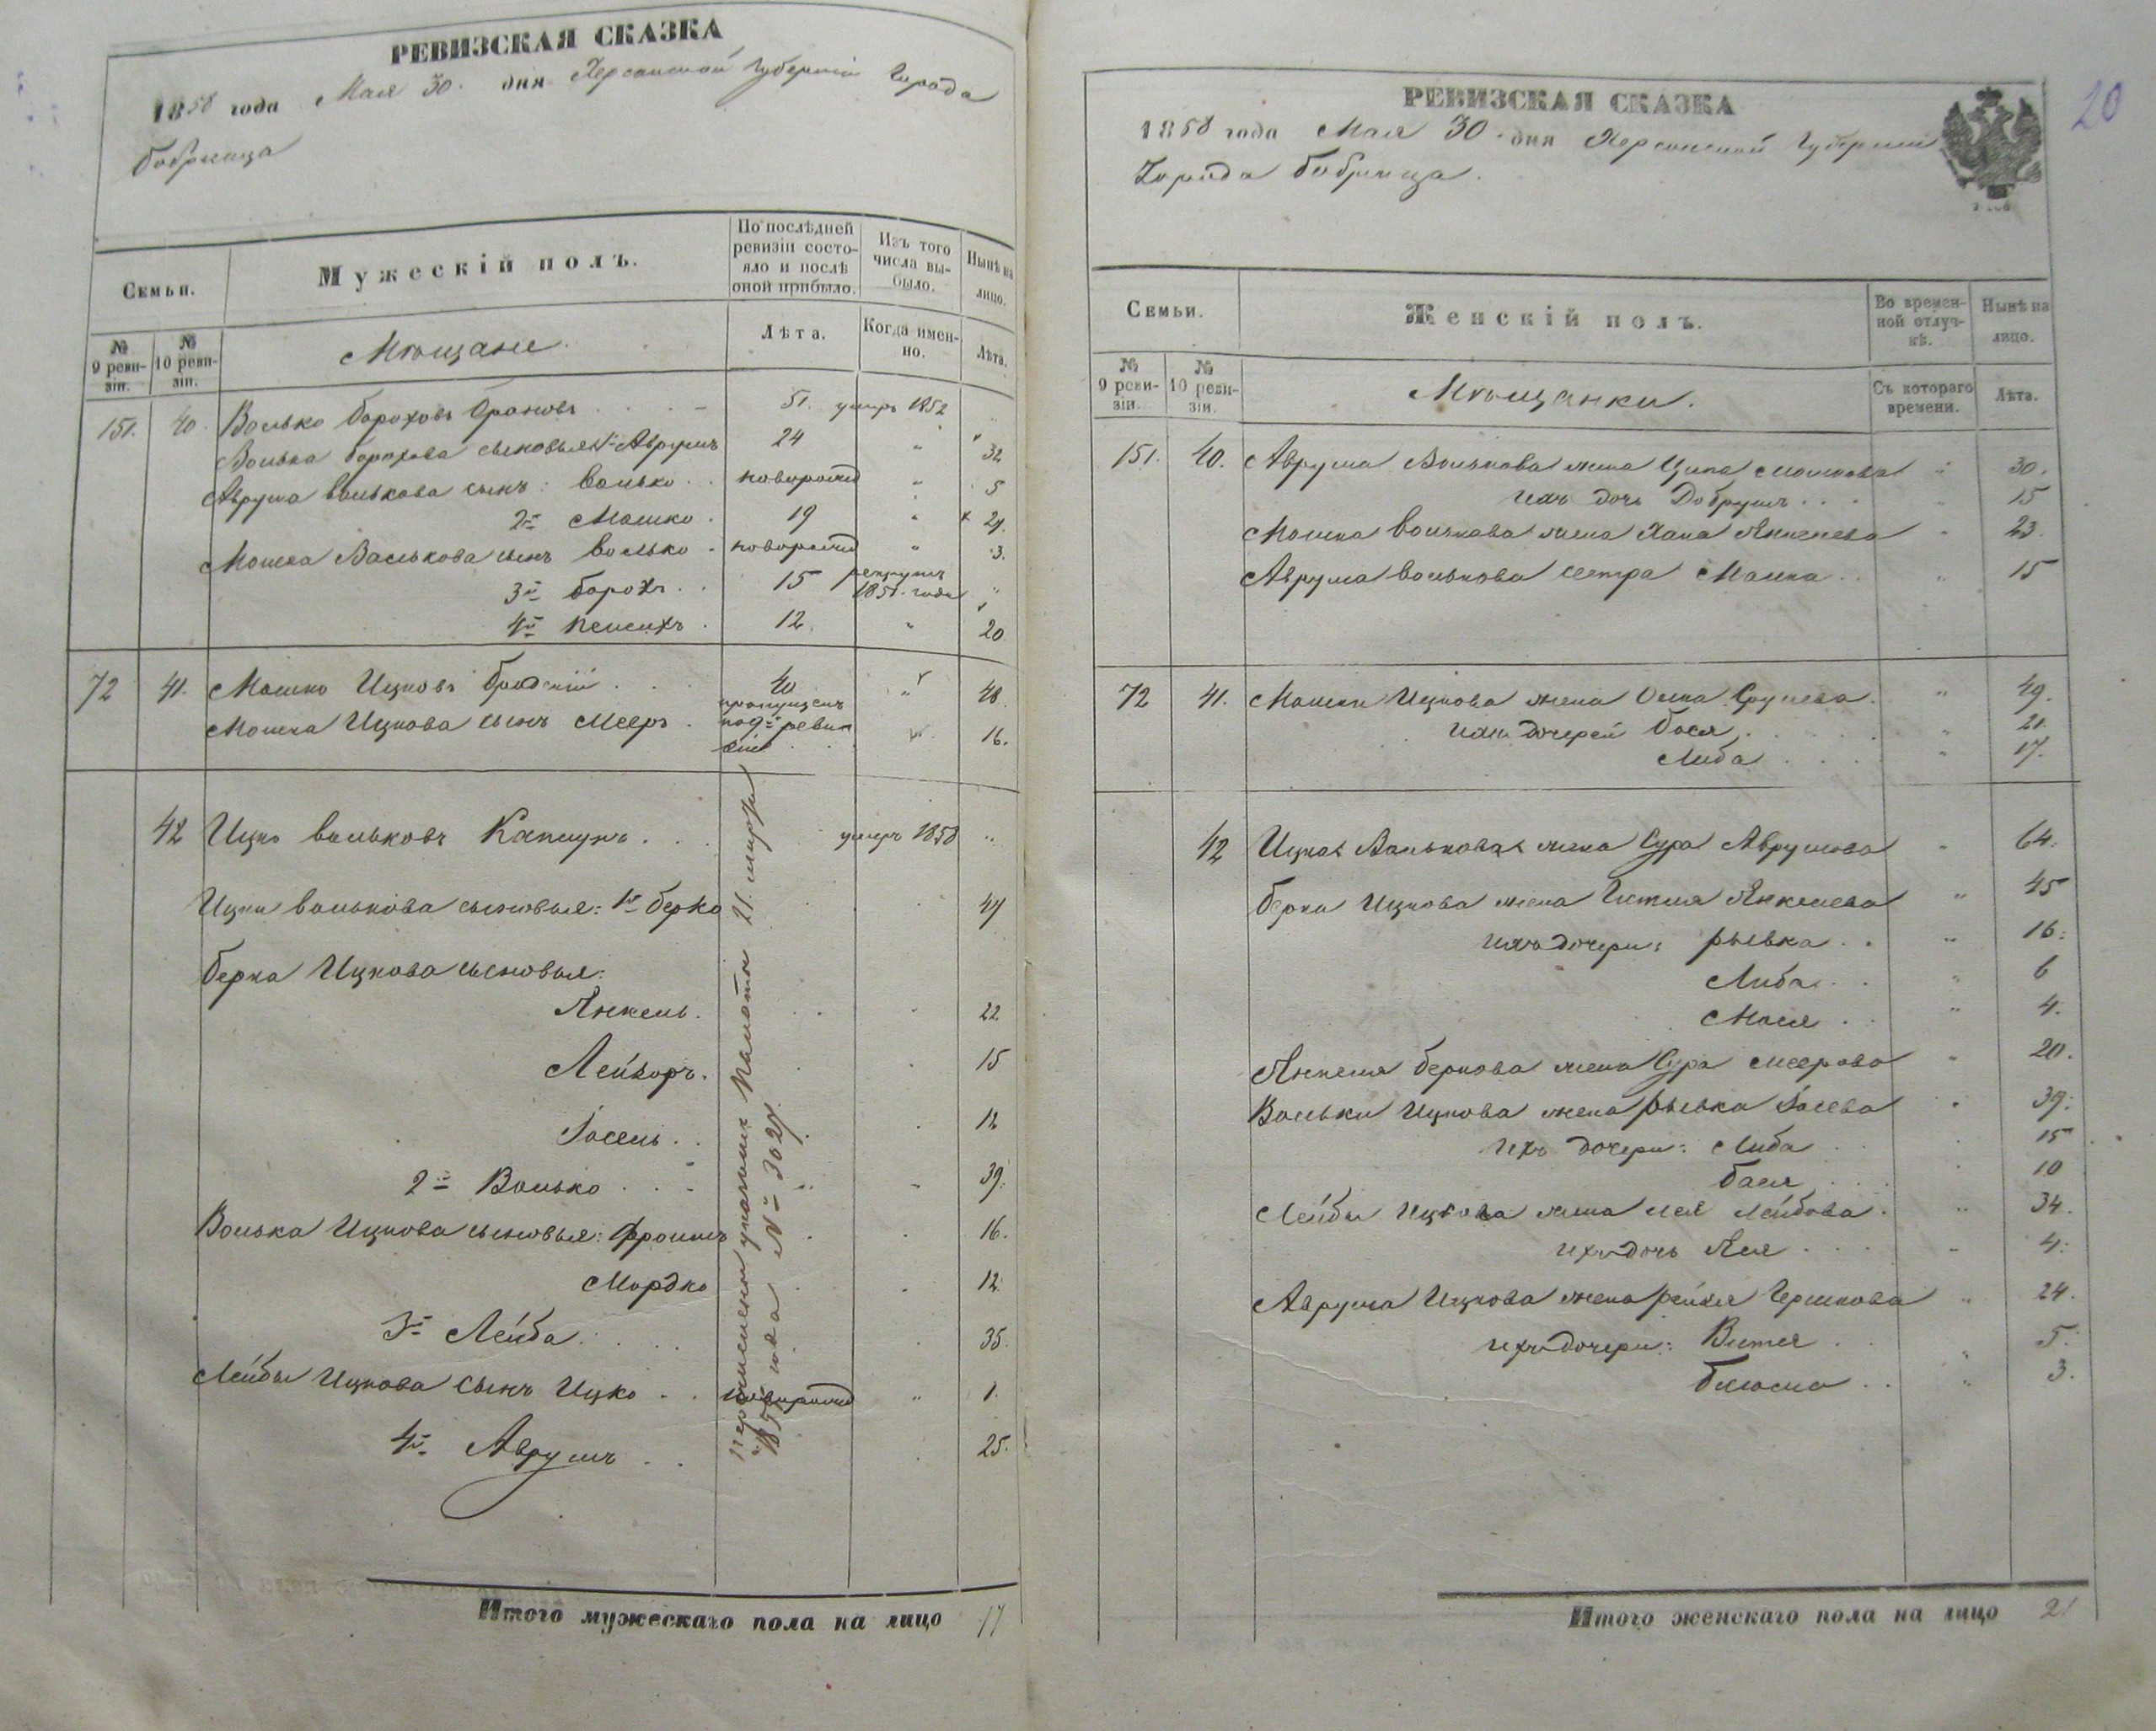 РЕВИЗСКАЯ СКАЗКА
1858 года Мая 30. дня Херсонской Губерніи Города
Бобринца
Семьи.
Мужескій полъ.
По послѣдней ревизіи состояло и послѣ оной прибыло.
Изъ того числа выбыло.
Нынѣ на лицо.
№ 9 ревизіи.
№ 10 ревизіи.
Мѣщане.
Лѣта.
Когда именно.
Лѣта.
151. 40. Волько Бороховъ 51. умеръ 1852 „
Волька Борохова сыновья 1й Аврумъ 24 „ 32
Аврума Волькова сынъ: Волько . . новорожд „ 5
2й Мошко . 19 „ 29.
Мошка Волькова сынъ Волько . новорожд „ 3.
3й Борохъ . . 15 рекрутъ 185 . года „
4й Пейсахъ . 12. „ 20
72 41. Мошко Ицковъ Бродскій . . . 40 „ 48.
Мошка Ицкова сынъ Мееръ . пропущенъ по 9й ревизіи „ 16.
42 Ицко Вольковъ . . . умеръ 1858 „
Ицки Волькова сыновья: 1й Берко 47
Берка Ицкова сыновья:
Янкель . 22
Лейзоръ . 15
Іосель . . 12
2й Волько . . . „ „ 39.
Волька Ицкова сыновья: Фроимъ 16.
Мордко 12.
3й Лейба . . . . 35.
Лейбы Ицкова сынъ Ицко . . новорожд „ 1.
4й Аврумъ . . 25.
Перечислены указомъ Палаты 21. марта
185 года № 3027.
Итого мужескаго пола на лицо 17
20
РЕВИЗСКАЯ СКАЗКА
1858 года Мая 30. дня Херсонской Губерніи
Города Бобринца.
Семьи.
Женскій полъ.
Во временной отлучкѣ.
Нынѣ на лицо.
№ 9 ревизіи.
№ 10 ревизіи.
Мѣщанки.
Съ котораго времени.
Лѣта.
151. 40. Аврума Волькова жена Ципа Мошкова „ 30.
ихъ дочь Добрушъ . . . „ 15
Мошка Волькова жена Хана Янкелева „ 23.
Аврума Волькова сестра Малка . . „ 15
72 41. Мошки Ицкова жена Сруля „ 49.
ихъ дочерей Бася . . . . . „ 21.
Либа . . . . „ 17.
42 Ицка Волькова жена Сура Аврумова „ 64.
Берки Ицкова жена Гитля Янкелева „ 45
ихъ дочери: Рывка . . „ 16.
Либа . . „ 6
Мася . . „ 4.
Янкеля Беркова жена Сура Меерова „ 20.
Вольки Ицкова жена Рывка Іосева „ 39.
ихъ дочери: Либа . 15
Бася . . . 10
Лейбы Ицкова жена Лея Лейбова . „ 34.
ихъ дочь Ася . . . „ 4.
Аврума Ицкова жена Рейзя Гершкова „ 24.
ихъ дочери: Витя . . „ 5.
Блюма . . „ 3.
Итого женскаго пола на лицо 21